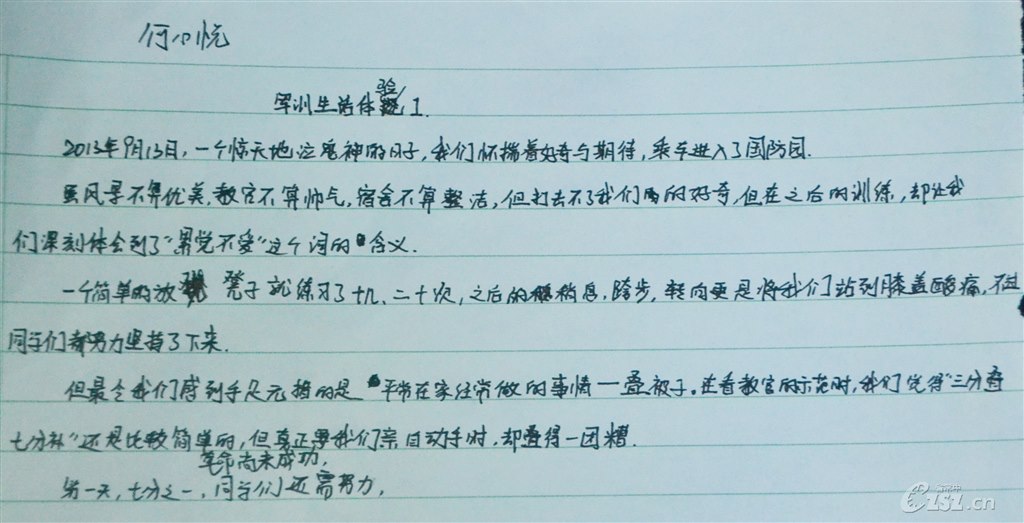 何心悦
军训生活体验1.
2013年9月13日,一个惊天地泣鬼神的日子,我们怀揣着好奇与期待,乘车进入了国防园.
虽风景不算优美,教官不算帅气,宿舍不算整洁,但打击不了我们的好奇,但在之后的训练,却让我
们深刻体会到了"累觉不爱"这个词的含义.
一个简单的放凳子就练习了十几、二十次,之后的稍息,跨步,转向更是将我们站到膝盖酸痛,不过
同学们都努力坚持了下来.
但最令我们感到手足无措的是平常在家经常做的事情一叠被子。在看教官的示范时,我们觉得"三分叠
七分补"还是比较简单的,但真正要我们亲自动手时,却叠得一团糟.
革命尚未成功,
第一天,七分之一,同学们还需努力,
C151.cn